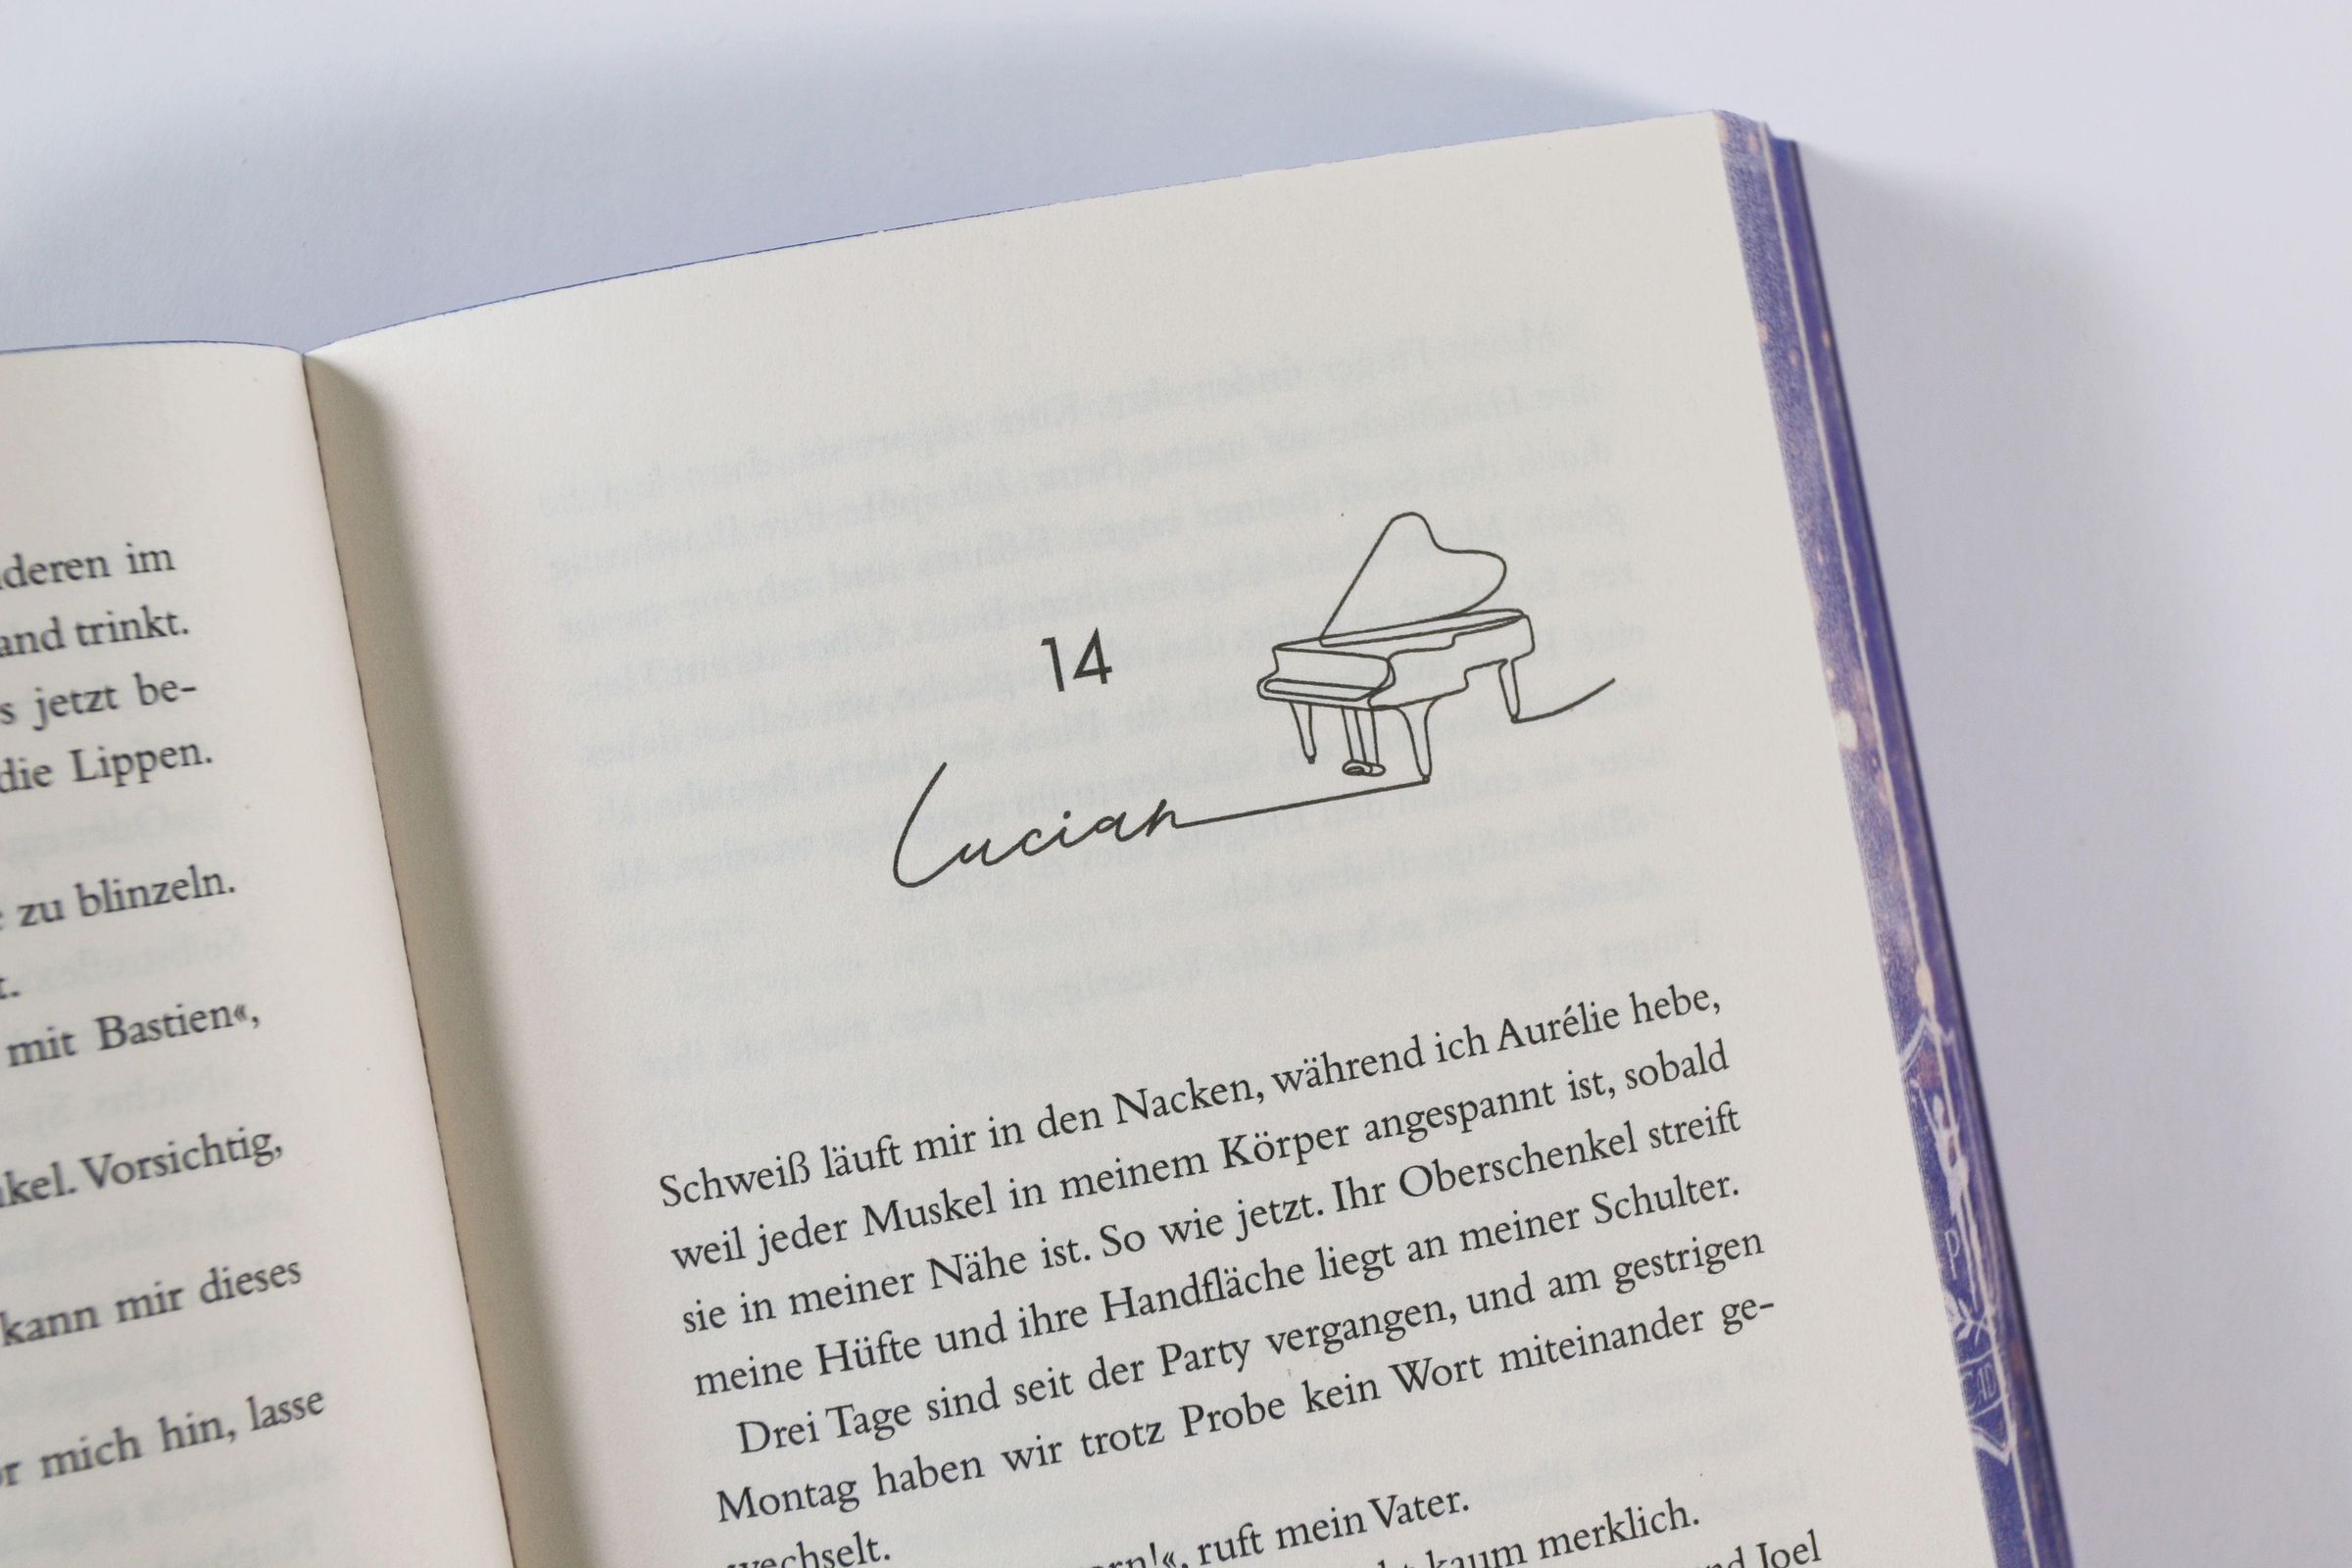 im
and trinkt.
s jetzt be-
die Lippen.
zu blinzeln.
t.
mit Bastien«,
kel. Vorsichtig,
kann mir dieses
mich hin, lasse
14
Lucian
Schweiß läuft mir in den Nacken, während ich Aurélie hebe,
weil jeder Muskel in meinem Körper angespannt ist, sobald
sie in meiner Nähe ist. So wie jetzt. Ihr Oberschenkel streift
meine Hüfte und ihre Handfläche liegt an meiner Schulter.
Drei Tage sind seit der Party vergangen, und am gestrigen
Montag haben wir trotz Probe kein Wort miteinander ge-
wechselt.
ruft mein Vater.
kaum merklich.
Joel